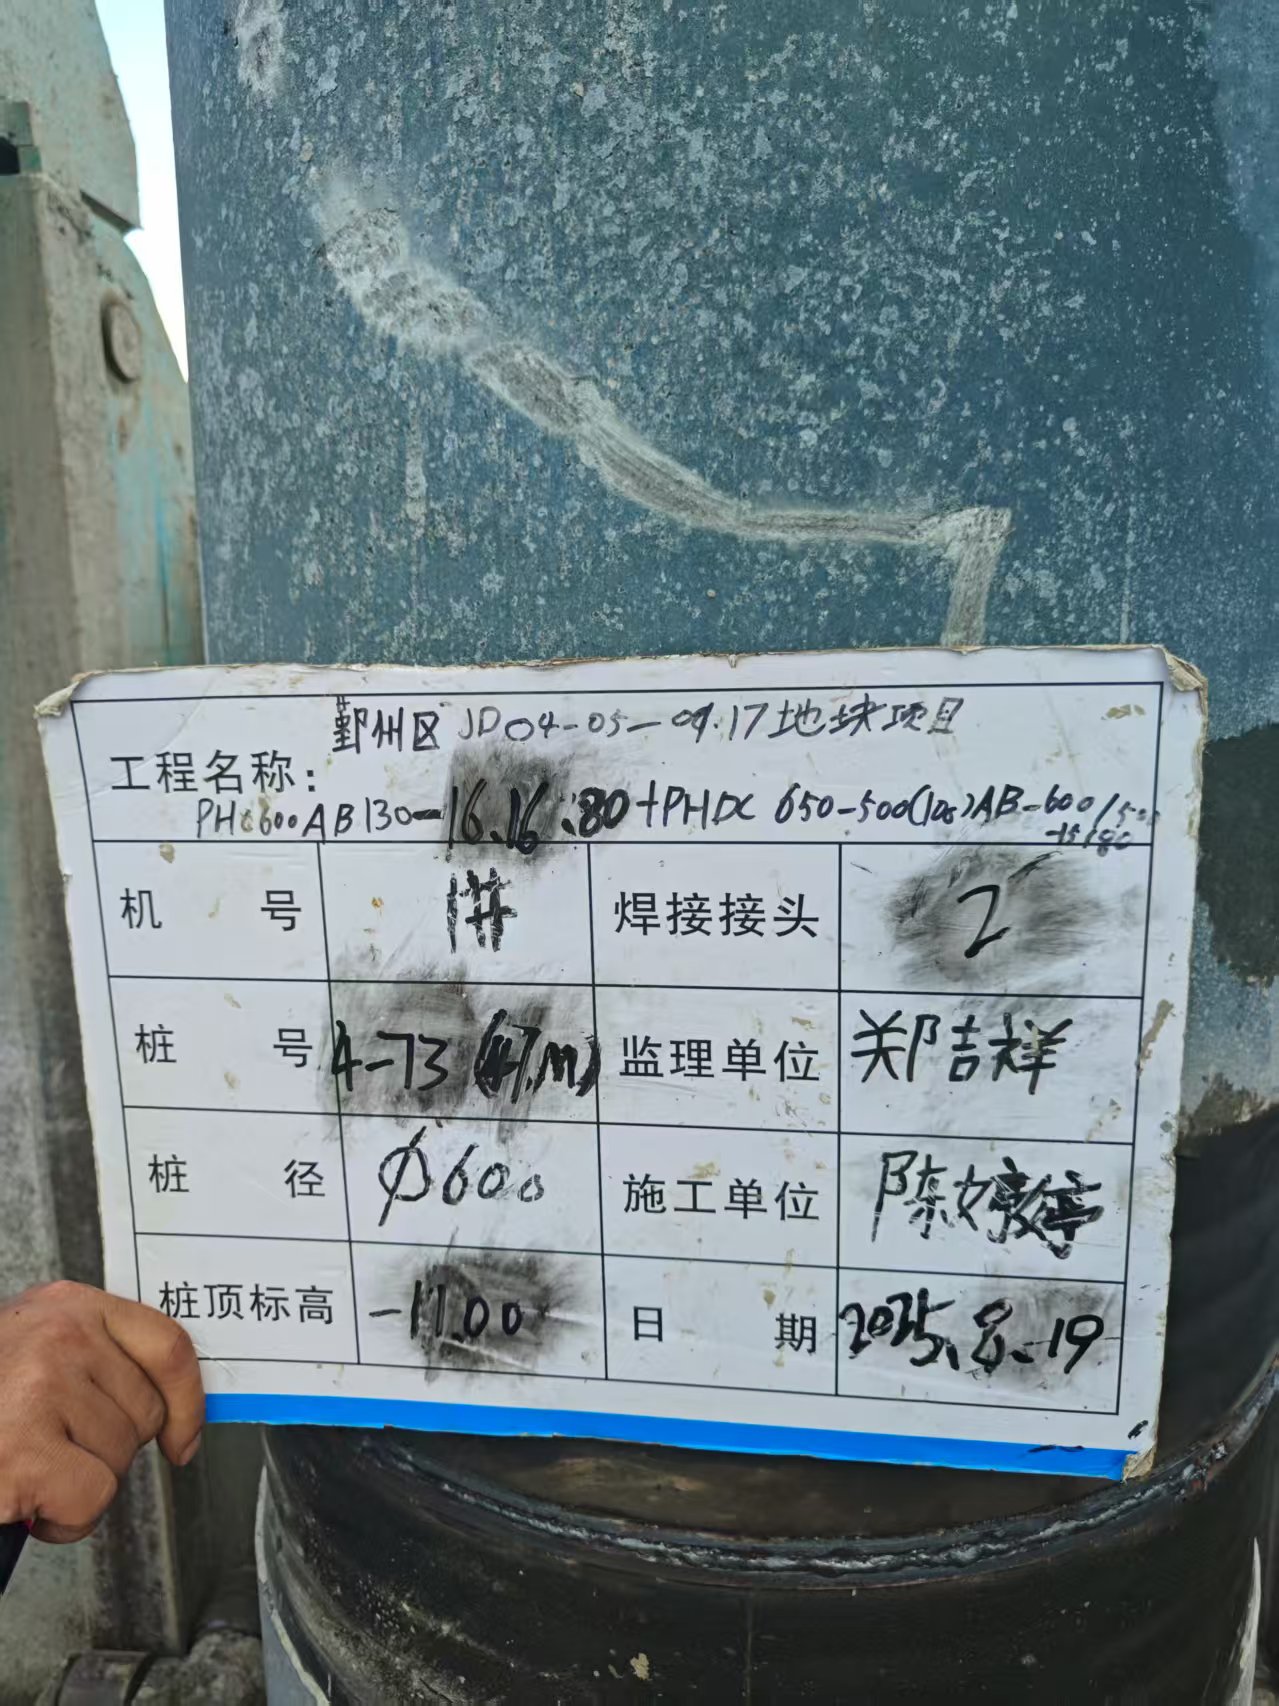 鄞州区JD04-05-09.17地块项目
工程名称：
PHC600AB130-16.16.80+PHDC 650-500(105)AB-600/500
-15/80
机 号 1# 焊接接头 2
桩 号 4-73 (47.m) 监理单位 郑吉祥
桩 径 Φ600 施工单位 陈婷婷
桩顶标高 -11.00 日 期 2025.8.19